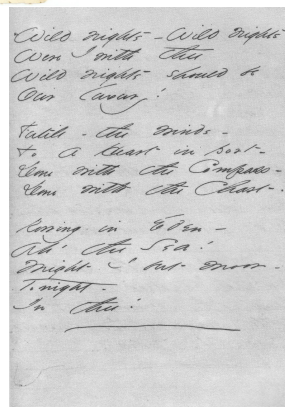 Wild nights - Wild nights
Were I with thee
Wild nights should be
Our luxury!
Futile - the winds -
To a Heart in port -
Done with the Compass -
Done with the Chart -
Rowing in Eden -
Ah! the Sea!
Might I but moor -
Tonight -
In thee!